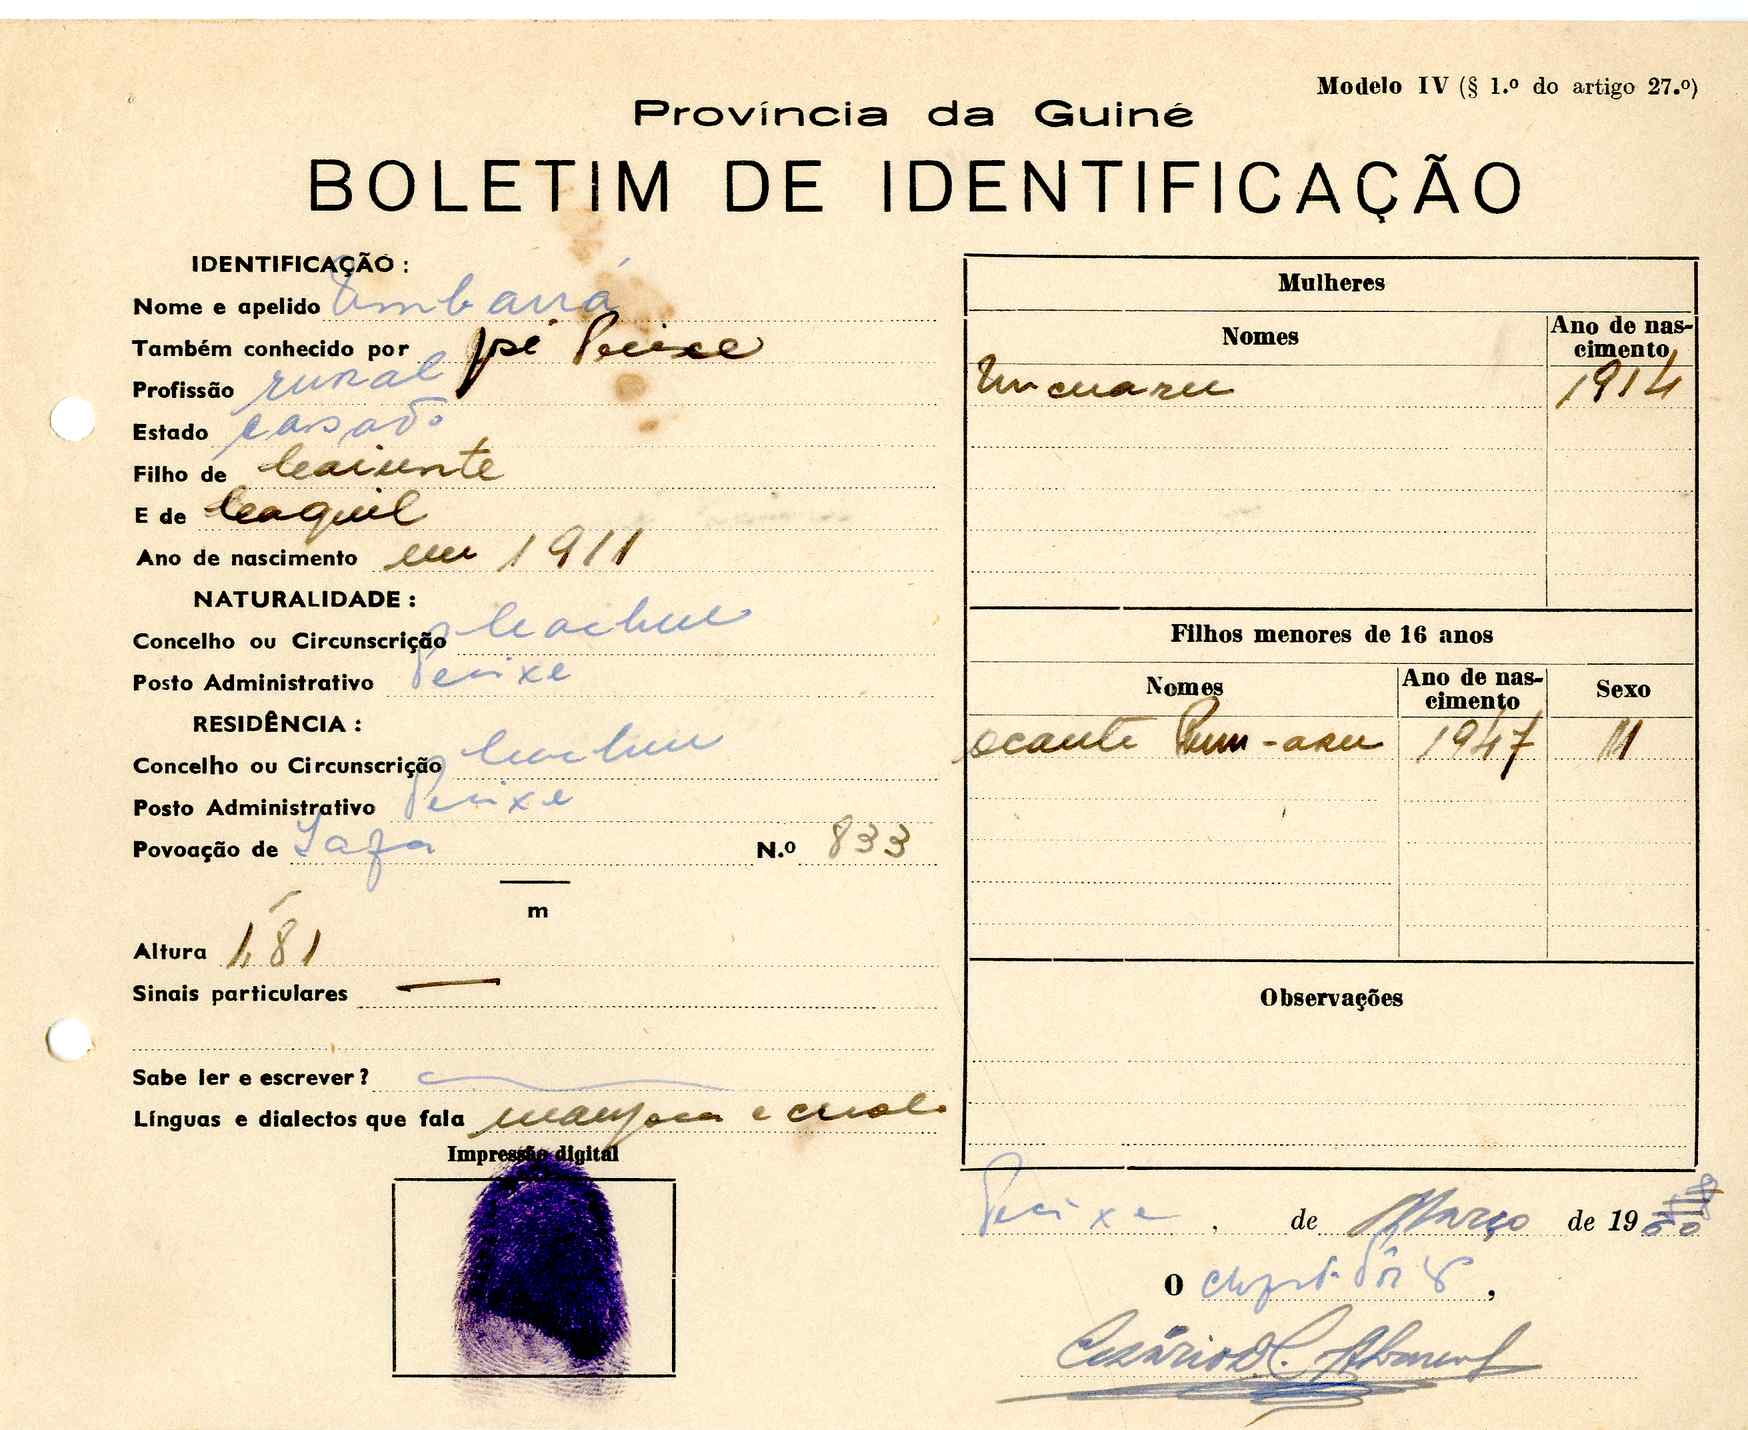 Modelo IV (§ 1.º do artigo 27.º)
Província da Guiné
BOLETIM DE IDENTIFICAÇÃO
IDENTIFICAÇÃO :
Nome e apelido
Também conhecido por José Peixe
Profissão rural
Estado casado
Filho de Caiunte
E de Caquil
Ano de nascimento em 1911
NATURALIDADE :
Concelho ou Circunscrição Cacheu
Posto Administrativo Pecixe
RESIDÊNCIA :
Concelho ou Circunscrição Cacheu
Posto Administrativo Pecixe
Povoação de N.º 833
m
Altura 1,81
Sinais particulares —
Sabe ler e escrever?
Línguas e dialectos que fala manjaca e criolo
Impressão digital
Mulheres
Nomes
Ano de nascimento
1914
Filhos menores de 16 anos
Nomes
Ano de nascimento
Sexo
Ocante 1947 M
Observações
Pecixe, de Março de 19
O ,